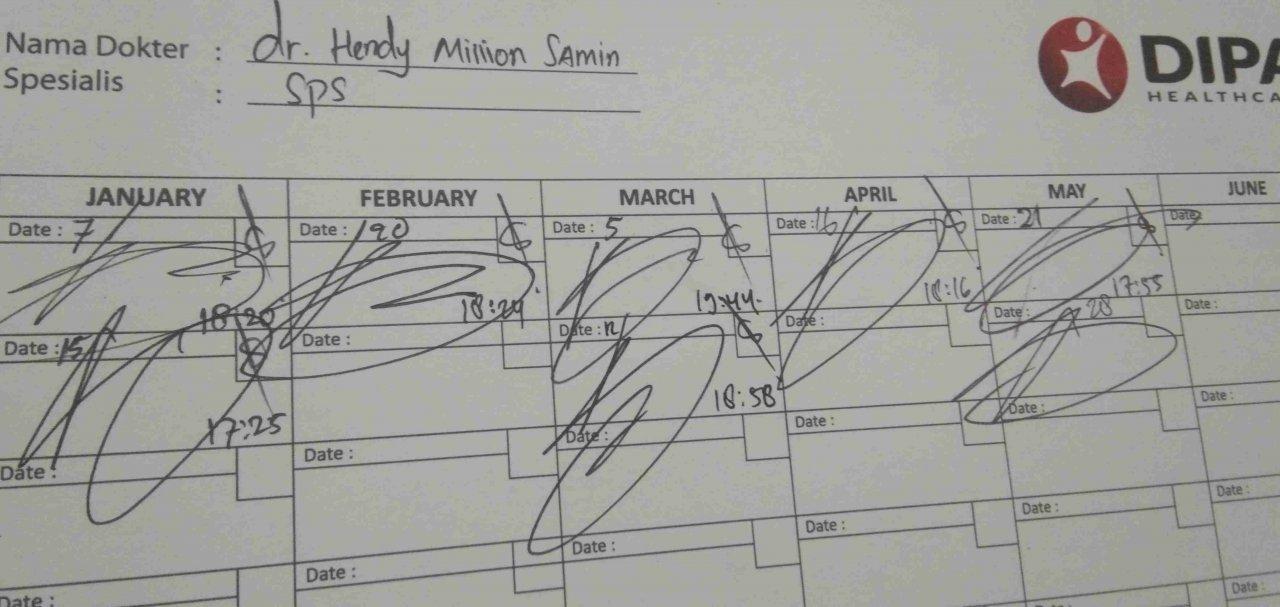 Nama Dokter : dr. Hendy Million SAmin
Spesialis : SpS
DIPA
HEALTHCA
JANUARY FEBRUARY MARCH APRIL MAY JUNE
Date : 7 Date : 20 Date : 5 Date : 16 Date : 21 Date
18:20 18:24 19:44 18:16 17:55
Date : 15 Date : Date : 12 Date : Date : 28 Date :
17:25 18:58
Date : Date : Date : Date : Date : Date :
Date : Date : Date : Date : Date : Date :